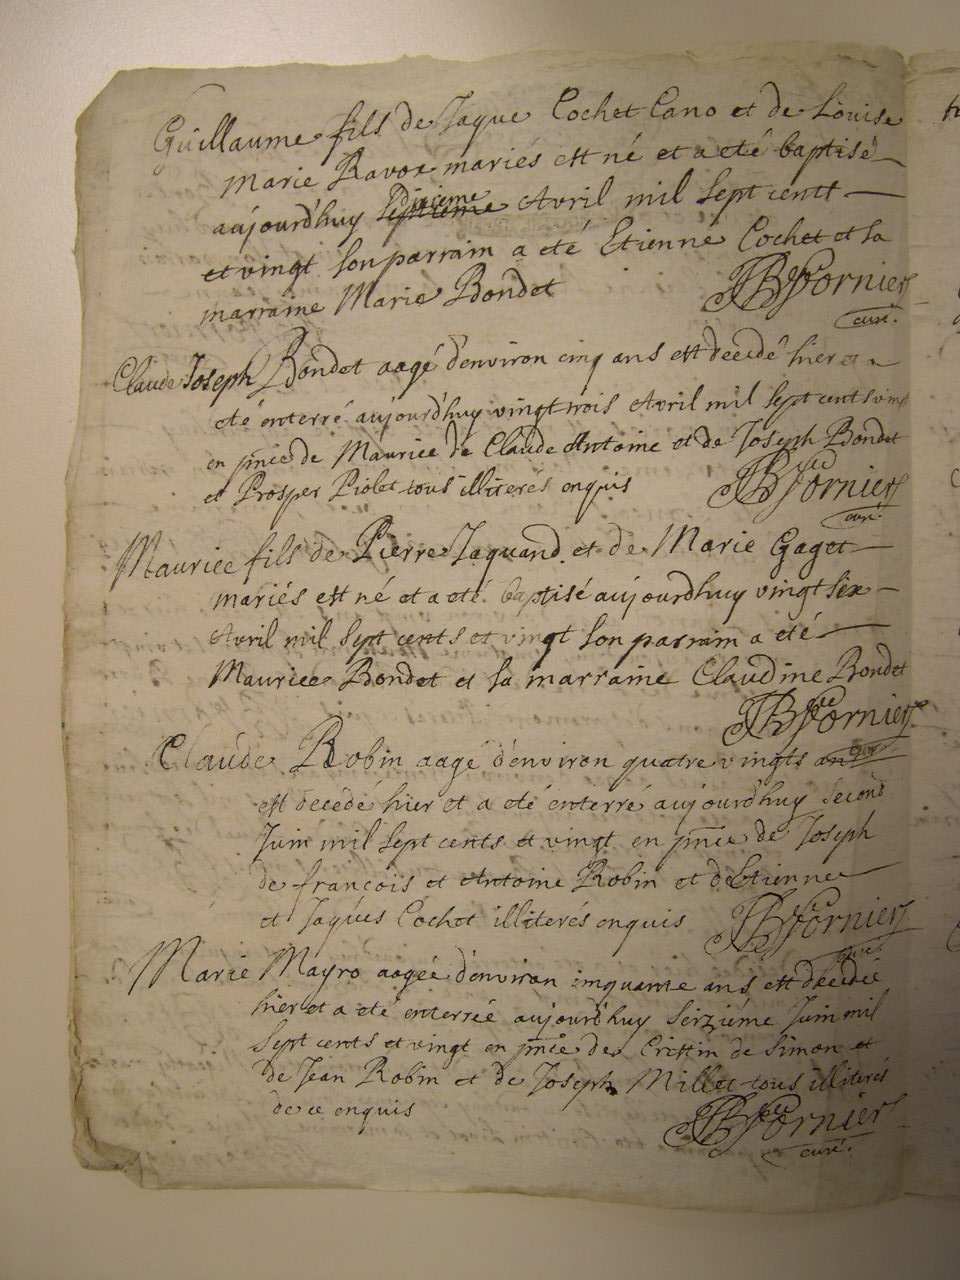 Guillaume fils de Jaque Cochet Cano et de Louise
Marie Ravox mariés est né et a eté baptisé
aujourd'huy septieme dixieme Avril mil sept centt
et vingt son parrain a eté Etienne Cochet et sa
marraine Marie Bondet JB Fornier
curé.
Claude Joseph Bondet aagé d'environ cinq ans est decedé hier et a
eté enterré aujourd'huy vingt trois Avril mil sept cents vingt
en pnce de Maurice de Claude Antoine et de Joseph Bondet
et Prosper Piolet tous illiterés enquis JB Fornier
curé.
Maurice fils de Pierre Jaquand et de Marie Gaget
mariés est né et a eté baptisé aujourd'huy vingt six
Avril mil sept cents et vingt son parrain a eté
Maurice Bondet et sa marraine Claudine Bondet
JB Fornier
curé
Claude Robin aagé d'environ quatre vingts ans
est decedé hier et a eté enterré aujourd'huy second
Juin mil sept cents et vingt en pnce de Joseph
de françois et Antoine Robin et d'Etienne
et Jaques Cochet illiterés enquis JB Fornier
curé
Marie Mayro aagée d'environ cinquante ans est decedée
hier et a eté enterrée aujourd'huy seiziéme Juin mil
sept cents et vingt en pnce de Cristin de Simon et
de Jean Robin et de Joseph Millet tous illiterés
de ce enquis JB Fornier
curé.